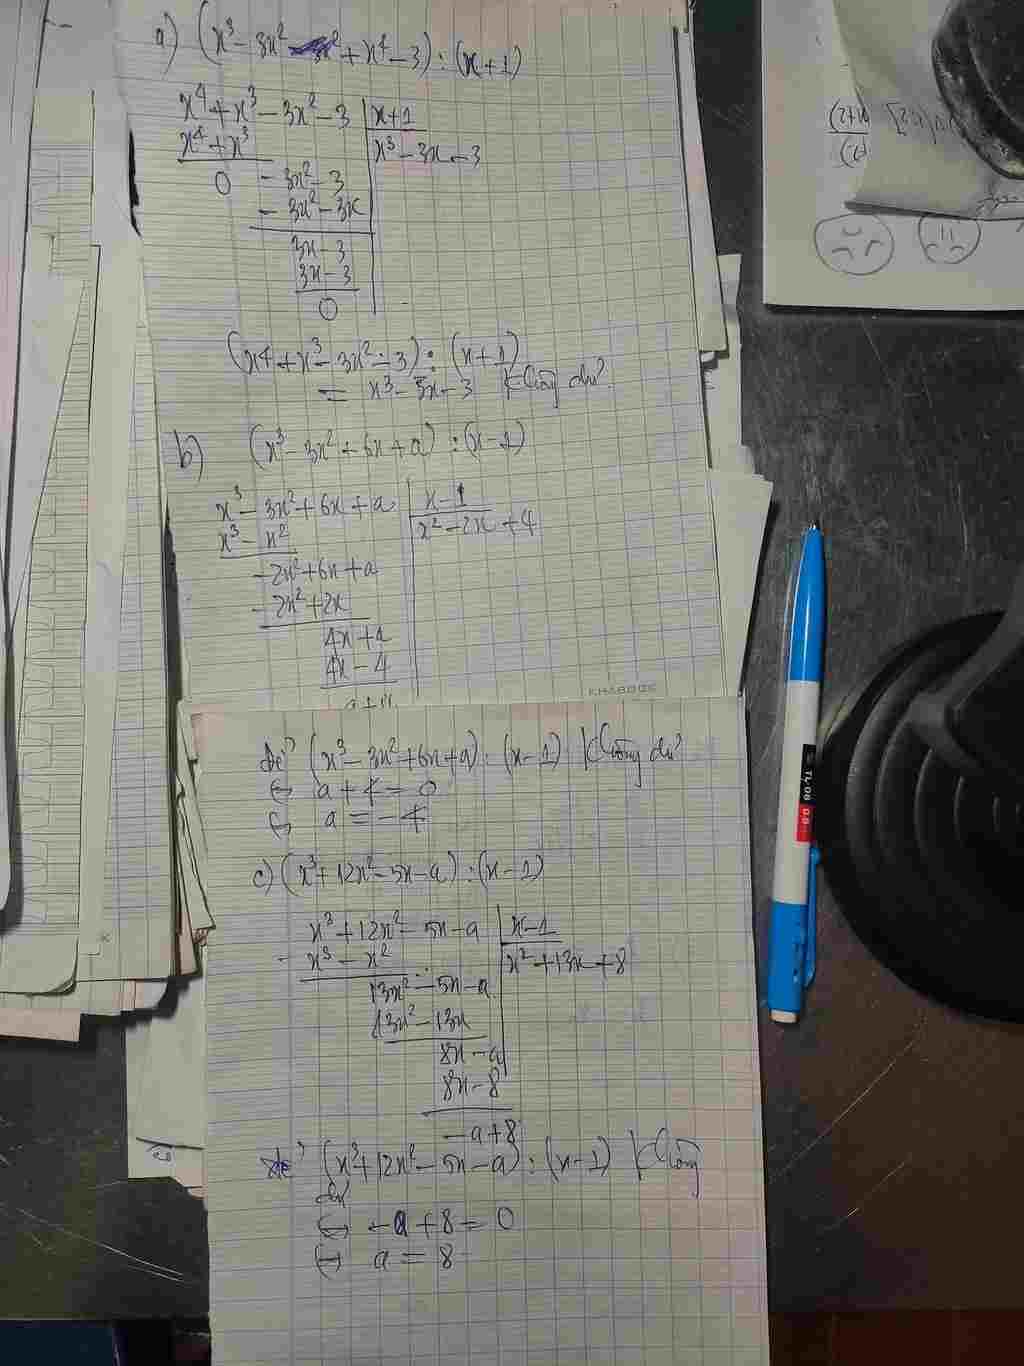 a) (x³ - 3x² + x⁴ - 3) : (x + 1)
x⁴ + x³ - 3x² - 3 | x + 1
x⁴ + x³ | x³ - 3x - 3
0 - 3x² - 3
- 3x² - 3x
3x - 3
3x - 3
0
(x⁴ + x³ - 3x² - 3) : (x + 1)
= x³ - 3x - 3 Không dư
b) (x³ - 3x² + 6x + a) : (x - 1)
x³ - 3x² + 6x + a | x - 1
x³ - x² | x² - 2x + 4
- 2x² + 6x + a
- 2x² + 2x
4x + a
4x - 4
a + 4
KHABOOK
Để (x³ - 3x² + 6x + a) : (x - 1) Không dư
⇔ a + 4 = 0
⇔ a = -4
c) (x³ + 12x² - 5x - a) : (x - 1)
x³ + 12x² - 5x - a | x - 1
- x³ - x² | x² + 13x + 8
13x² - 5x - a
13x² - 13x
8x - a
8x - 8
- a + 8
để (x³ + 12x² - 5x - a) : (x - 1) Không
dư
⇔ - a + 8 = 0
⇔ a = 8
TL 08
0.8